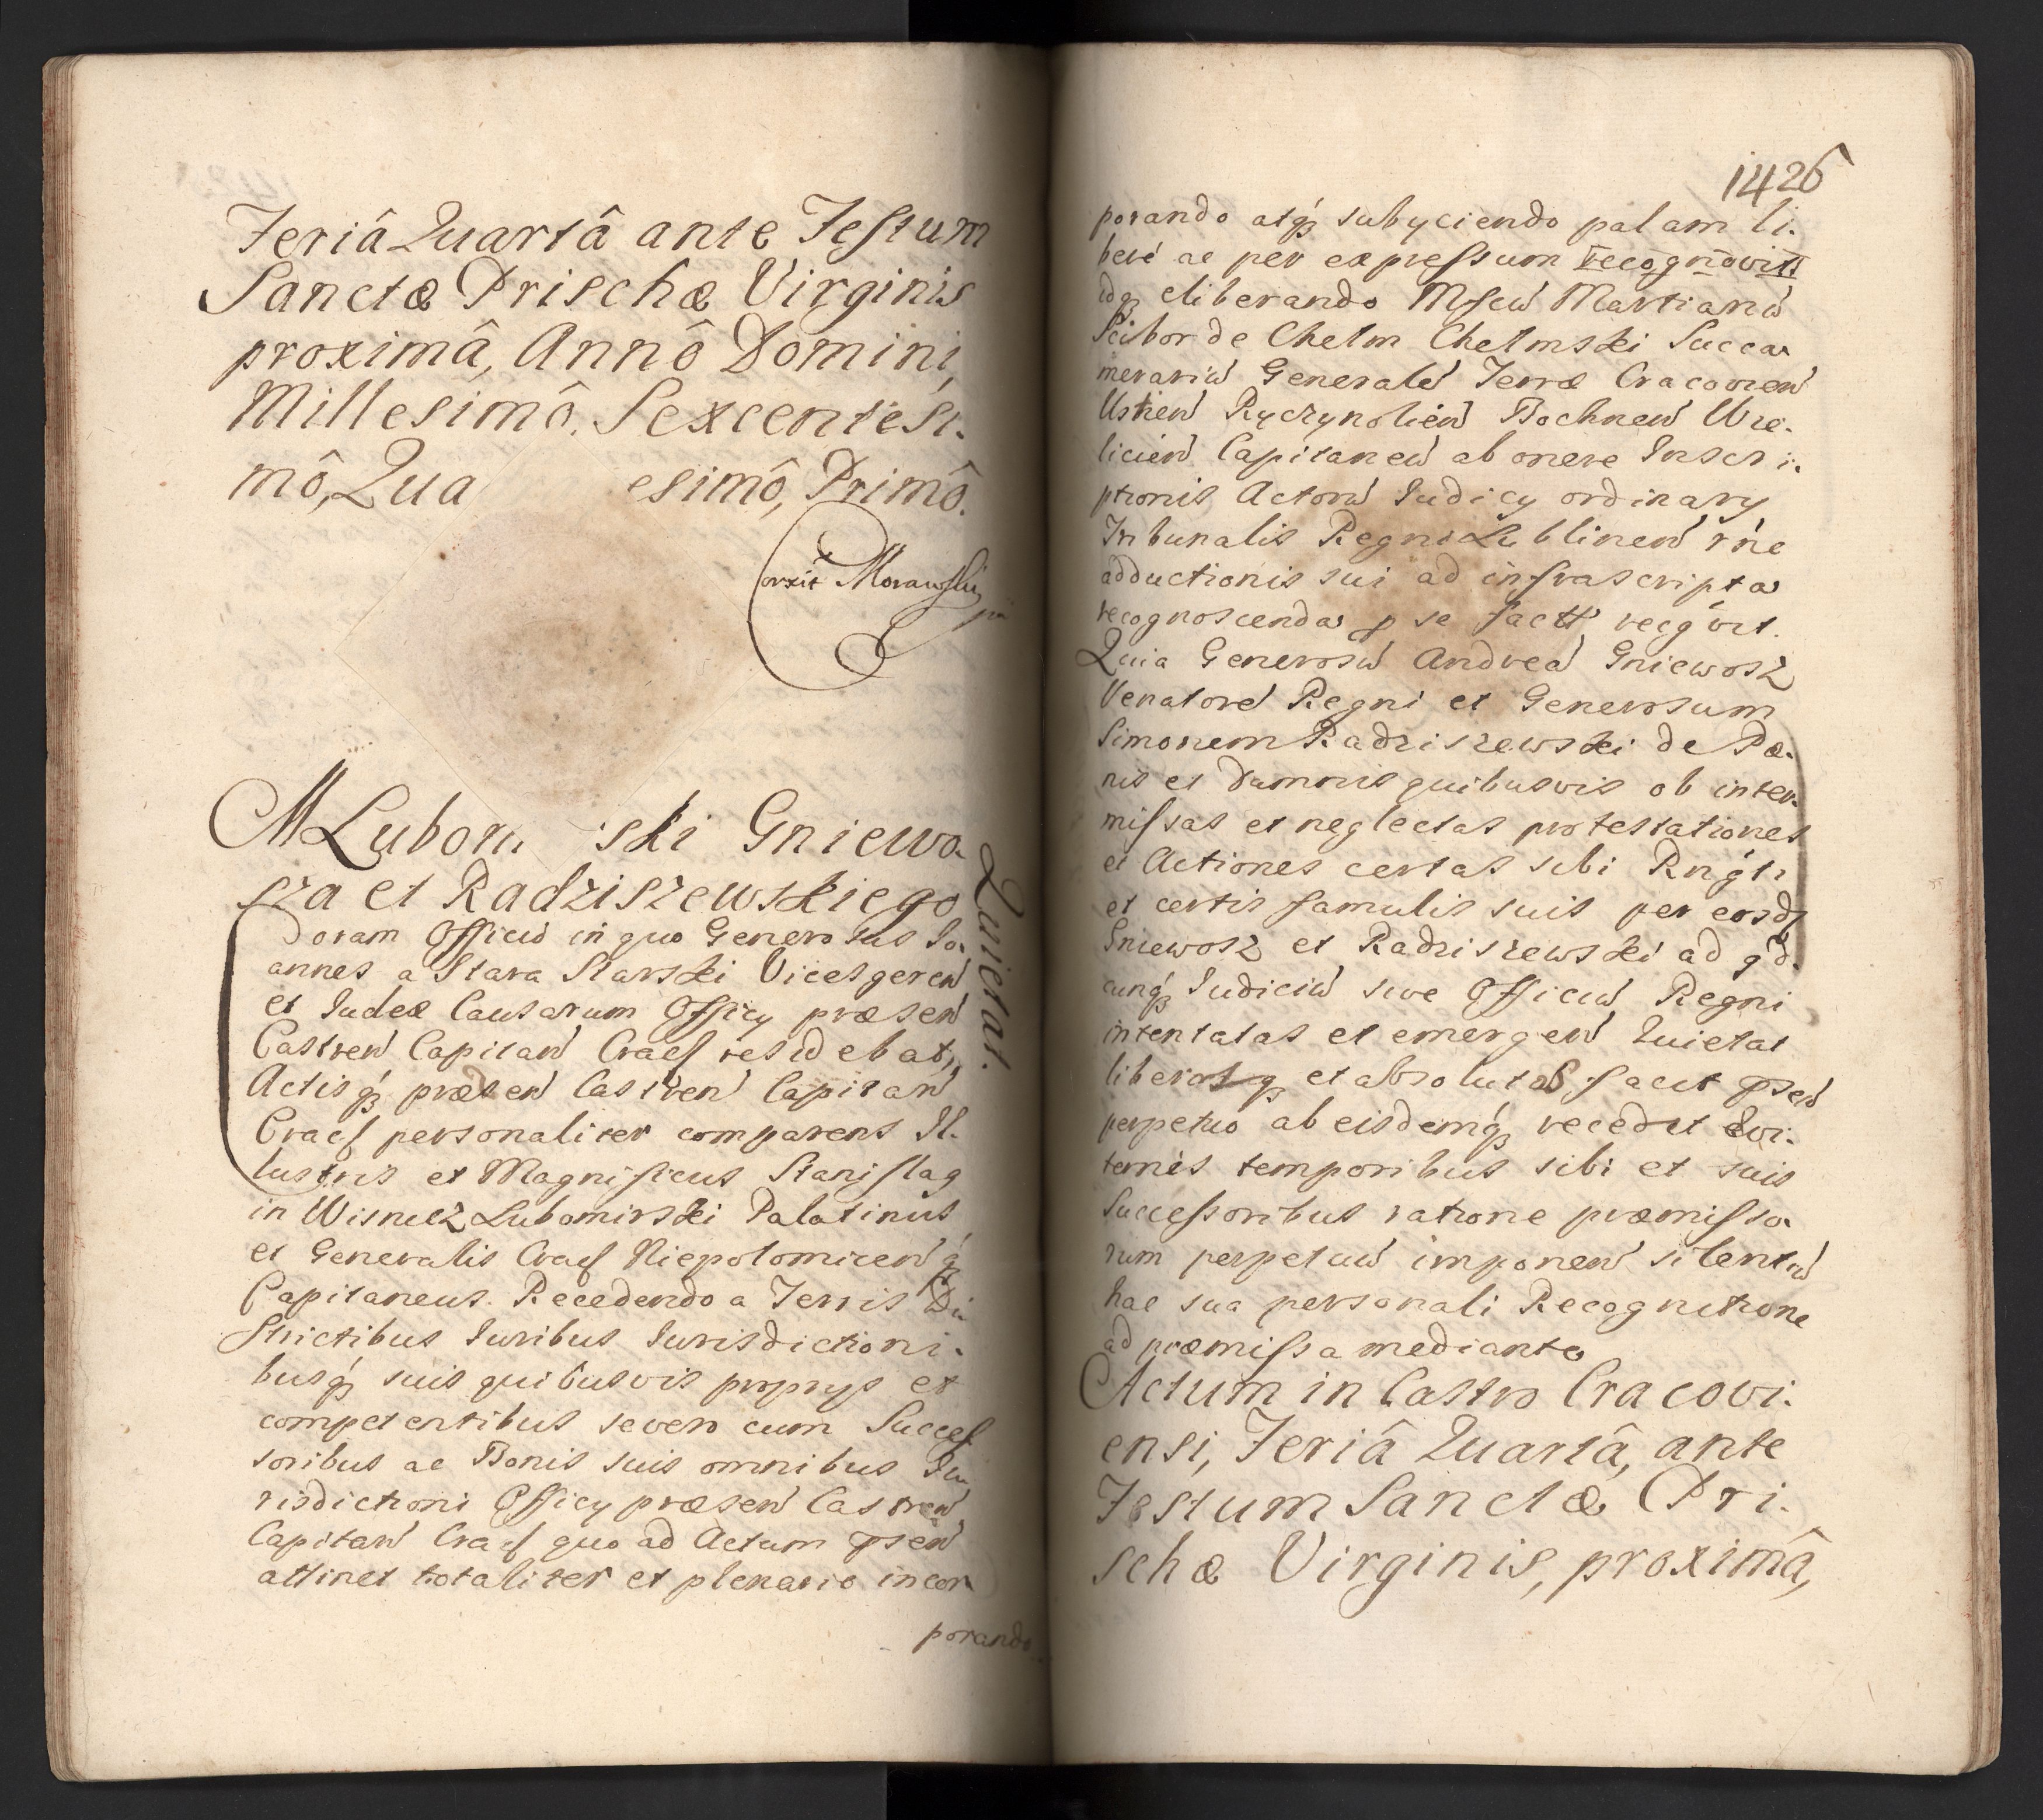 Feriâ Quartâ ante Festum
Sanctæ Prischæ Virginis
proximâ, Annô Domini,
Millesimô, Sexcentesi-
mô, Qua esimô, Primô.
Corxit Morawski
M Lubom ski Gniewo-
sza et Radziszewskiego
Quietat.
Coram Officio in quo Generosus Jo-
annes a Stara Starski Vicesgeren
et Judex Causarum Officy præsen
Castren Capitan Cracs residebat,
Actisq præsen Castren Capitan
Cracs personaliter comparens Il-
lustris et Magnificus Stanislaq
in Wisnicz Lubomirski Palatinus
et Generalis Cracs Niepolomicenq
Capitaneus. Recedendo a Terris Di-
strictibus Juribus Jurisdictioni-
busq suis quibusvis proprys et
competentibus severo cum Succes
soribus ac Bonis suis omnibus Ju-
risdictioni Officy præsen Castren
Capitan Cracs quo ad Actum psen
attinet totaliter et plenario incor-
porando
1426
porando atq subyciendo palam li-
berè ac per expressum recognovit
idq eliberando Mfcu Martianu
Scibor de Chelm Chelmski Succa-
merariu Generale Terræ Cracovien
Ustien Ryczynolien Bochnen Wie-
licien Capitaneu ab onere Inscri-
ptionis Actoru Judicy ordinary
Tribunalis Regni Lublinen rne
adductionis sui ad infrascripta
recognoscenda p se fact recgvit.
Quia Generosu Andrea Gniewosz
Venatore Regni et Generosum
Simonem Radziszewski de Pæ-
nis et Damnis quibusvis ob inter-
missas et neglectas protestationes
et Actiones certas sibi Rngti
et certis famulis suis per eosd
Gniewosz et Radziszewski ad qd-
cunq Judiciu sive Officiu Regni
intentatas et emergen Quietat
liberosq et absolutos facit psen
perpetuo ab eisdemq recedit Evi-
ternis temporibus sibi et suis
Successoribus ratione præmisso-
rum perpetuu imponen silentiu
hac sua personali Recognitione
ad præmissa mediante
Actum in Castro Cracovi-
ensi, Feriâ Quartâ, ante
Festum Sanctæ Pri-
schæ Virginis, proximâ,